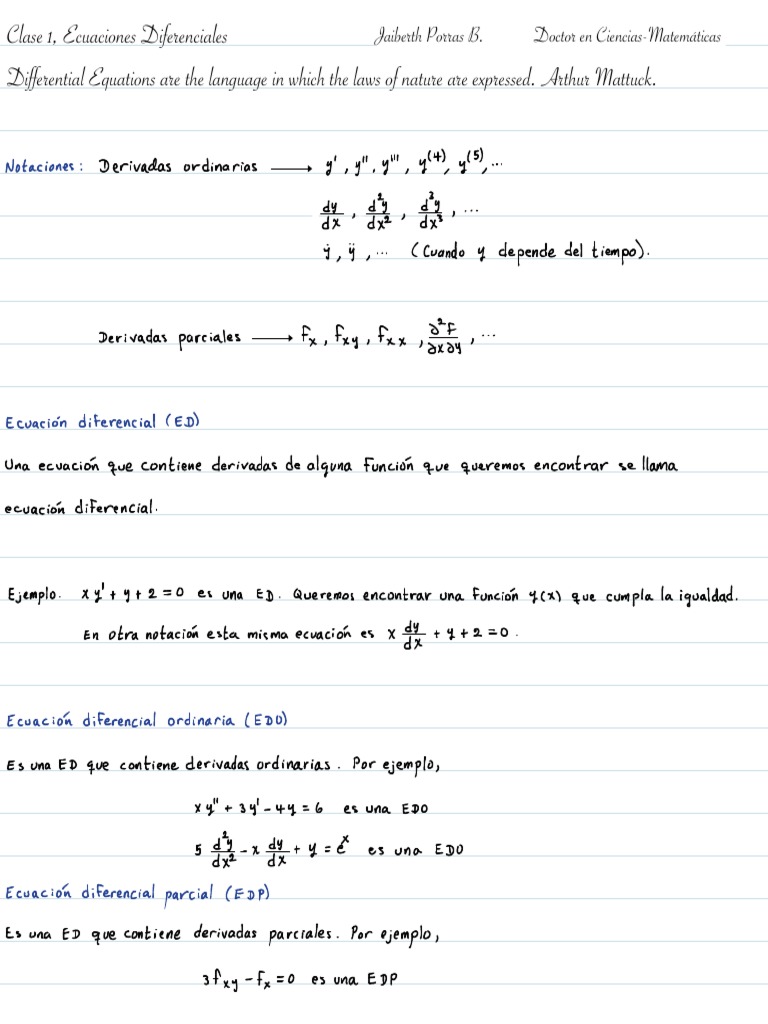 Clase 1, Ecuaciones Diferenciales Jaiberth Porras B. Doctor en Ciencias-Matemáticas
Differential Equations are the language in which the laws of nature are expressed. Arthur Mattuck.
Notaciones: Derivadas ordinarias ⟶ y', y'', y''', y⁽⁴⁾, y⁽⁵⁾, ...
dy/dx, d²y/dx², d³y/dx³, ...
ẏ, ÿ, ... (Cuando y depende del tiempo).
Derivadas parciales ⟶ f_x, f_xy, f_xx, ∂²F/∂x∂y, ...
Ecuación diferencial (ED)
Una ecuación que contiene derivadas de alguna función que queremos encontrar se llama
ecuación diferencial.
Ejemplo. xy' + y + 2 = 0 es una ED. Queremos encontrar una función y(x) que cumpla la igualdad.
En otra notación esta misma ecuación es x dy/dx + y + 2 = 0.
Ecuación diferencial ordinaria (EDO)
Es una ED que contiene derivadas ordinarias. Por ejemplo,
xy'' + 3y' - 4y = 6 es una EDO
5 d²y/dx² - x dy/dx + y = eˣ es una EDO
Ecuación diferencial parcial (EDP)
Es una ED que contiene derivadas parciales. Por ejemplo,
3f_xy - f_x = 0 es una EDP